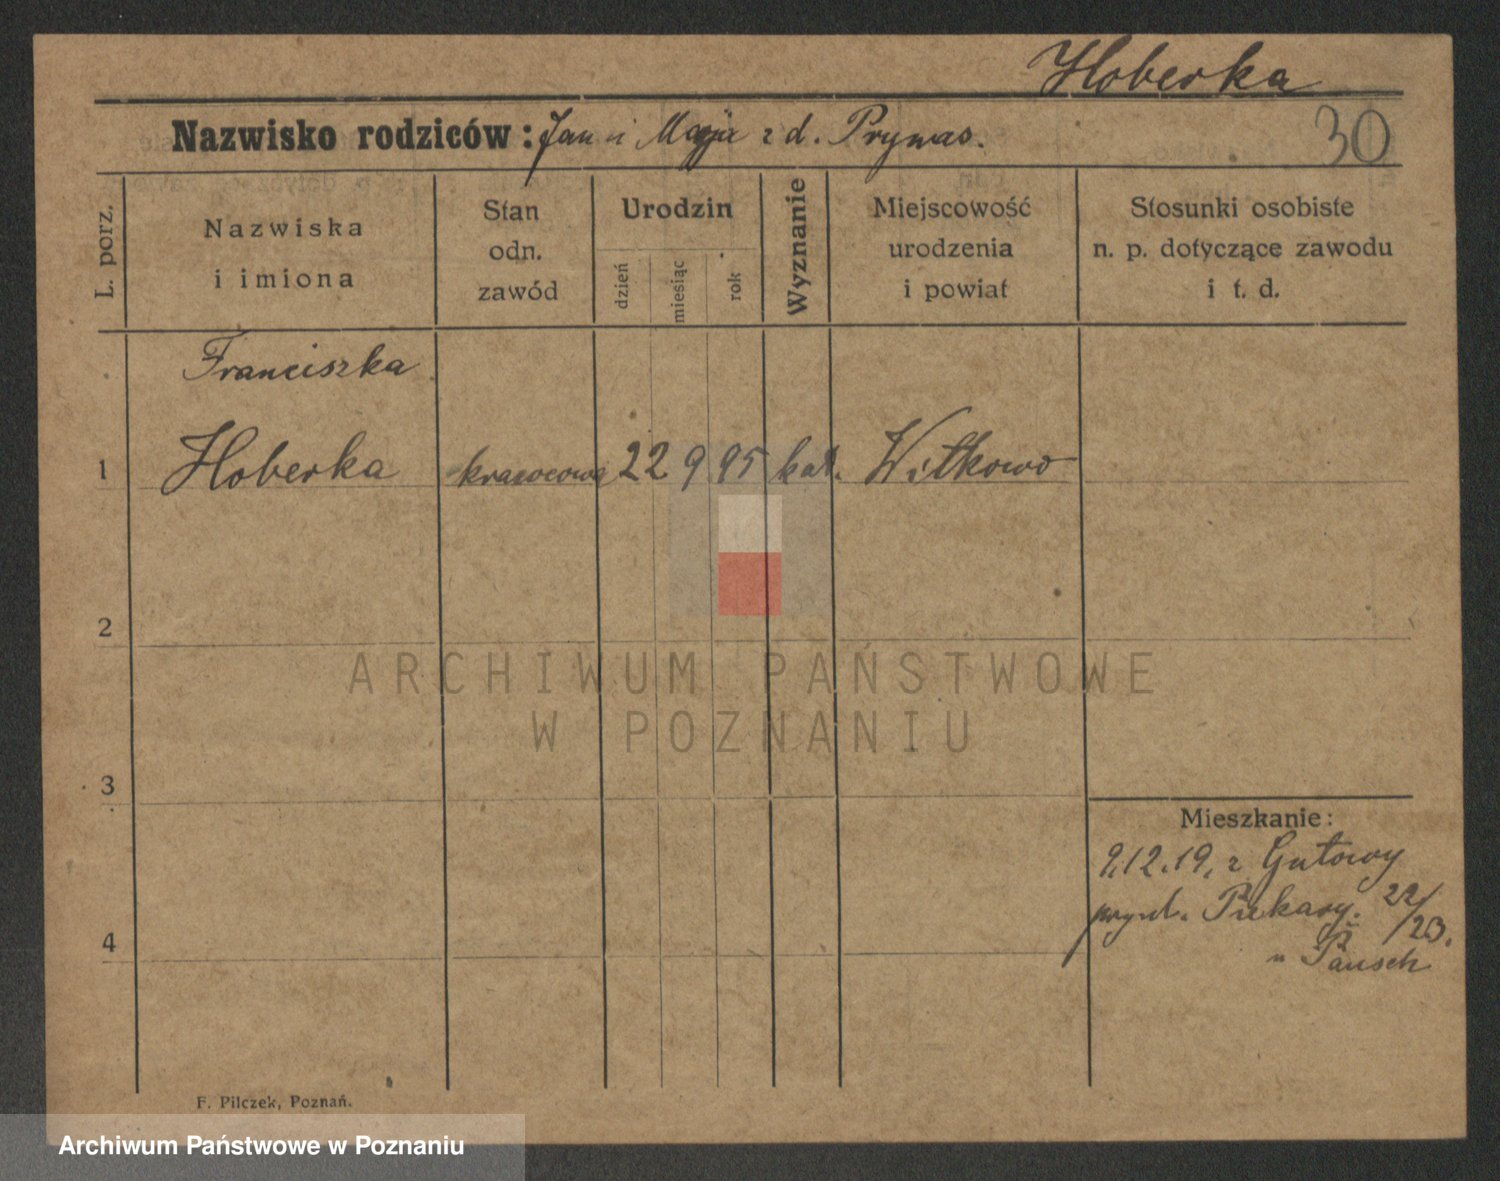 Hoberka
Nazwisko rodziców: Jan i Marja z d. Prymas.
30
L. porz.
Nazwiska
i imiona
Stan
odn.
zawód
Urodzin
dzień
miesiąc
rok
Wyznanie
Miejscowość
urodzenia
i powiat
Stosunki osobiste
n. p. dotyczące zawodu
i t. d.
Franciszka
1 Hoberka krawcowa 22 9 95 kat. Witkowo
2
ARCHIWUM PAŃSTWOWE
W POZNANIU
3
Mieszkanie:
9.12.19. z Gutowy
Piekary. 22/23.
4
u Pansch
F. Pilczek, Poznań.
Archiwum Państwowe w Poznaniu